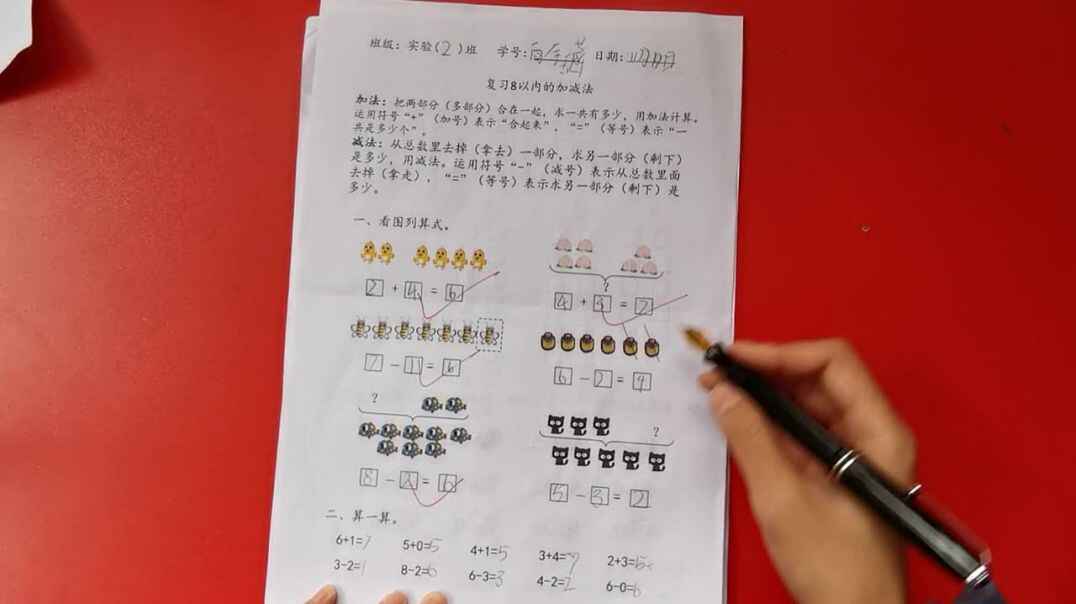 班级：实验（2）班 学号： 日期：
复习8以内的加减法
加法：把两部分（多部分）合在一起，求一共有多少，用加法计算。
运用符号“+”（加号）表示“合起来”，“=”（等号）表示“一
共是多少个”。
减法：从总数里去掉（拿去）一部分，求另一部分（剩下）
是多少，用减法。运用符号“-”（减号）表示从总数里面
去掉（拿走），“=”（等号）表示求另一部分（剩下）是
多少。
一、看图列算式。
?
2 + 4 = 6
4 + 3 = 7
7 - 1 = 6
6 - 2 = 4
?
?
8 - 2 = 6
5 - 3 = 2
二、算一算。
6+1=7 5+0=5 4+1=5 3+4=7 2+3=5
3-2=1 8-2=6 6-3=3 4-2=2 6-0=6